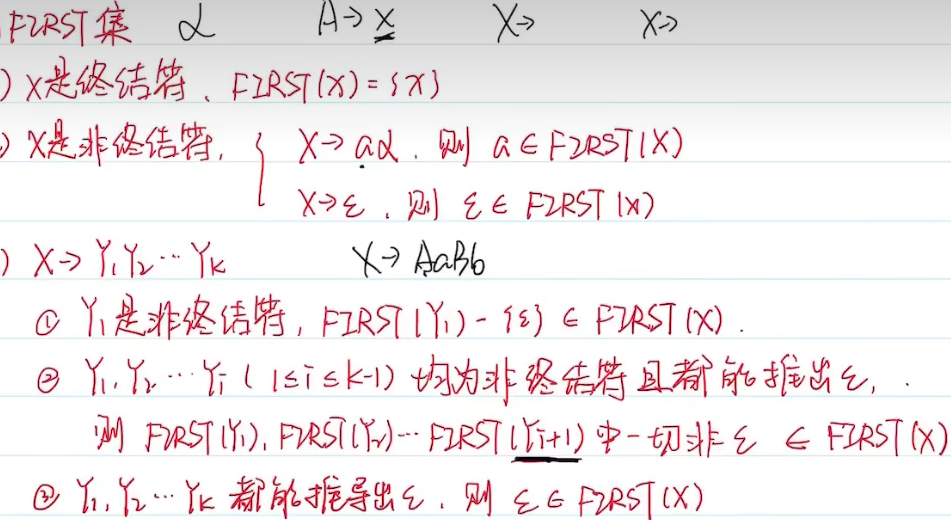 FIRST集 α A→X X→ X→
) X是终结符、FIRST(X)={X}
) X是非终结符, { X→aα、则 a∈FIRST(X)
X→ε、则 ε∈FIRST(X)
) X→Y₁Y₂…Yₖ X→AaBb
① Y₁是非终结符, FIRST(Y₁)-{ε}∈FIRST(X).
② Y₁,Y₂…Yi(1≤i≤k-1)均为非终结符且都能推出ε,
则 FIRST(Y₁),FIRST(Y₂)…FIRST(Yi+1)中一切非ε ∈ FIRST(X)
③ Y₁,Y₂…Yₖ都能推导出ε、则 ε∈FIRST(X)